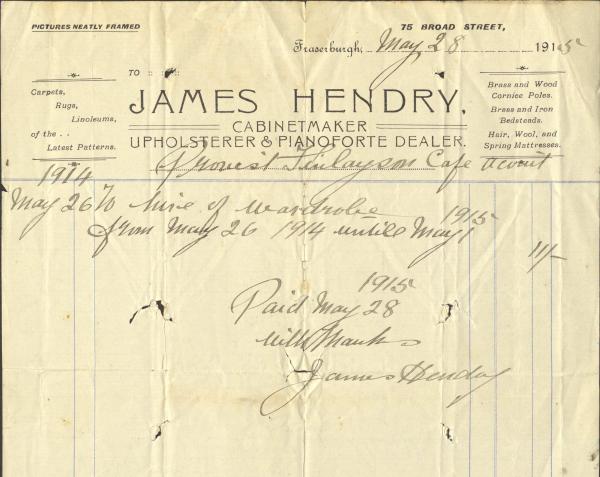 PICTURES NEATLY FRAMED
75 BROAD STREET,
Fraserburgh, May 28 1915
TO
Carpets,
Rugs,
Linoleums,
of the . .
Latest Patterns.
JAMES HENDRY,
CABINETMAKER
UPHOLSTERER & PIANOFORTE DEALER.
Brass and Wood
Cornice Poles.
Brass and Iron
Bedsteads.
Hair, Wool, and
Spring Mattresses.
Provost Finlayson Cafe acount
1914
May 26 To hire of wardrobe 1915
from May 26 1914 untill May 1
11/-
1915
Paid May 28
With Thanks
James Hendry